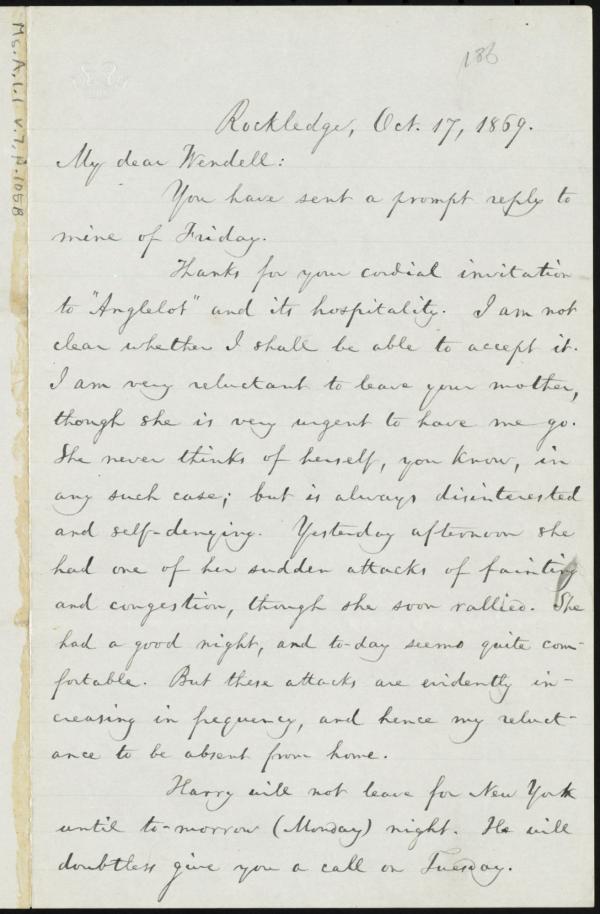 186
Ms. A. 1. 1 v. 7, p. 105B
Rockledge, Oct. 17, 1869.
My dear Wendell:
You have sent a prompt reply to
mine of Friday.
Thanks for your cordial invitation
to "Anglelot" and its hospitality. I am not
clear whether I shall be able to accept it.
I am very reluctant to leave your mother,
though she is very urgent to have me go.
She never thinks of herself, you know, in
any such case; but is always disinterested
and self-denying. Yesterday afternoon she
had one of her sudden attacks of fainting
and congestion, though she soon rallied. She
had a good night, and to-day seems quite com-
fortable. But these attacks are evidently in-
creasing in frequency, and hence my reluct-
ance to be absent from home.
Harry will not leave for New York
until to-morrow (Monday) night. He will
doubtless give you a call on Tuesday.